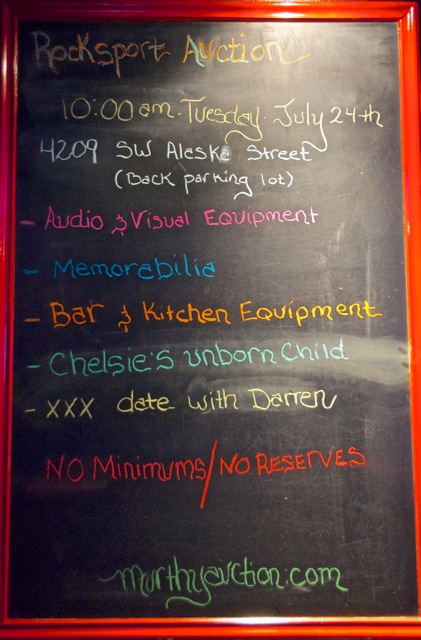 Rocksport Auction
10:00 am. Tuesday. July 24th
4209 SW Alaska Street
(Back parking lot)
- Audio & Visual Equipment
- Memorabilia
- Bar & Kitchen Equipment
- Chelsie's unborn Child
- XXX date with Darren
NO Minimums/NO RESERVES
murthyauction.com